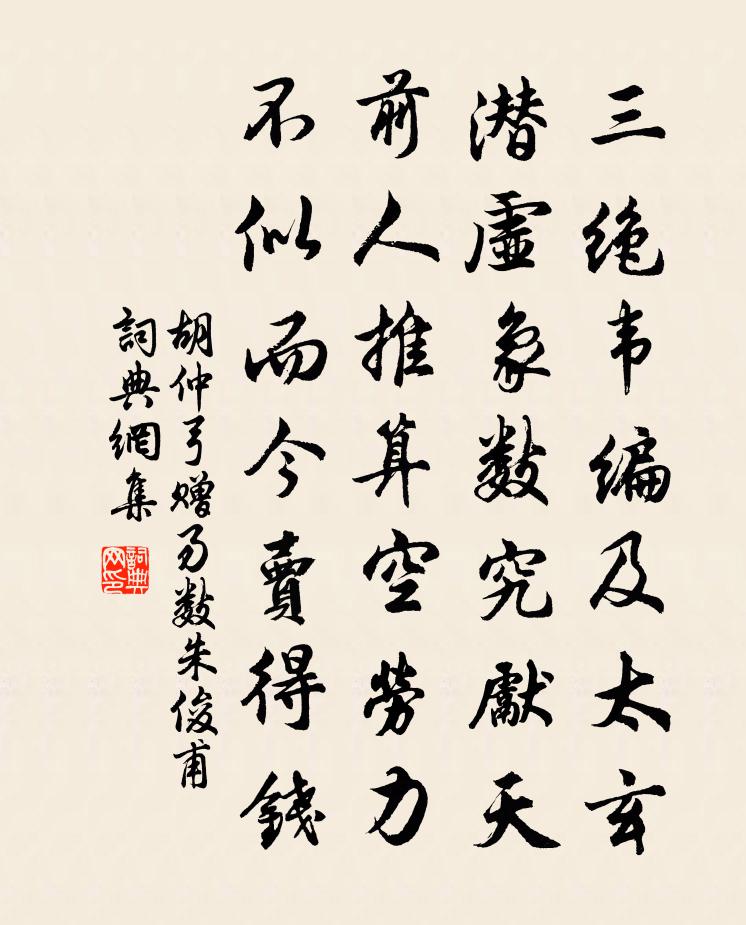 三绝韦编及太玄
潜虚象数究獻天
前人推算空勞力
不似而今賣得錢
胡仲弓赠易数朱俊甫
詞典網集
詞典网印